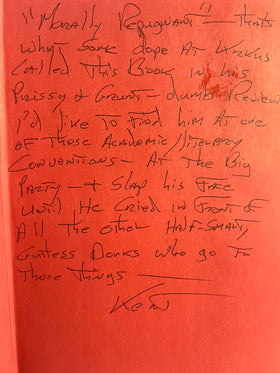 "Morally Repugnant" — thats
what some dope at Kirkus
called this Book in his
Prissy & Grunt - dumb Review
I'd like to Find him At one
of Those Academic/Literary
Conventions — At The Big
Party — & Slap his Face
until He cried in Front of
All The other Half-Smart,
Gutless Donks who go To
Those Things —
Kent